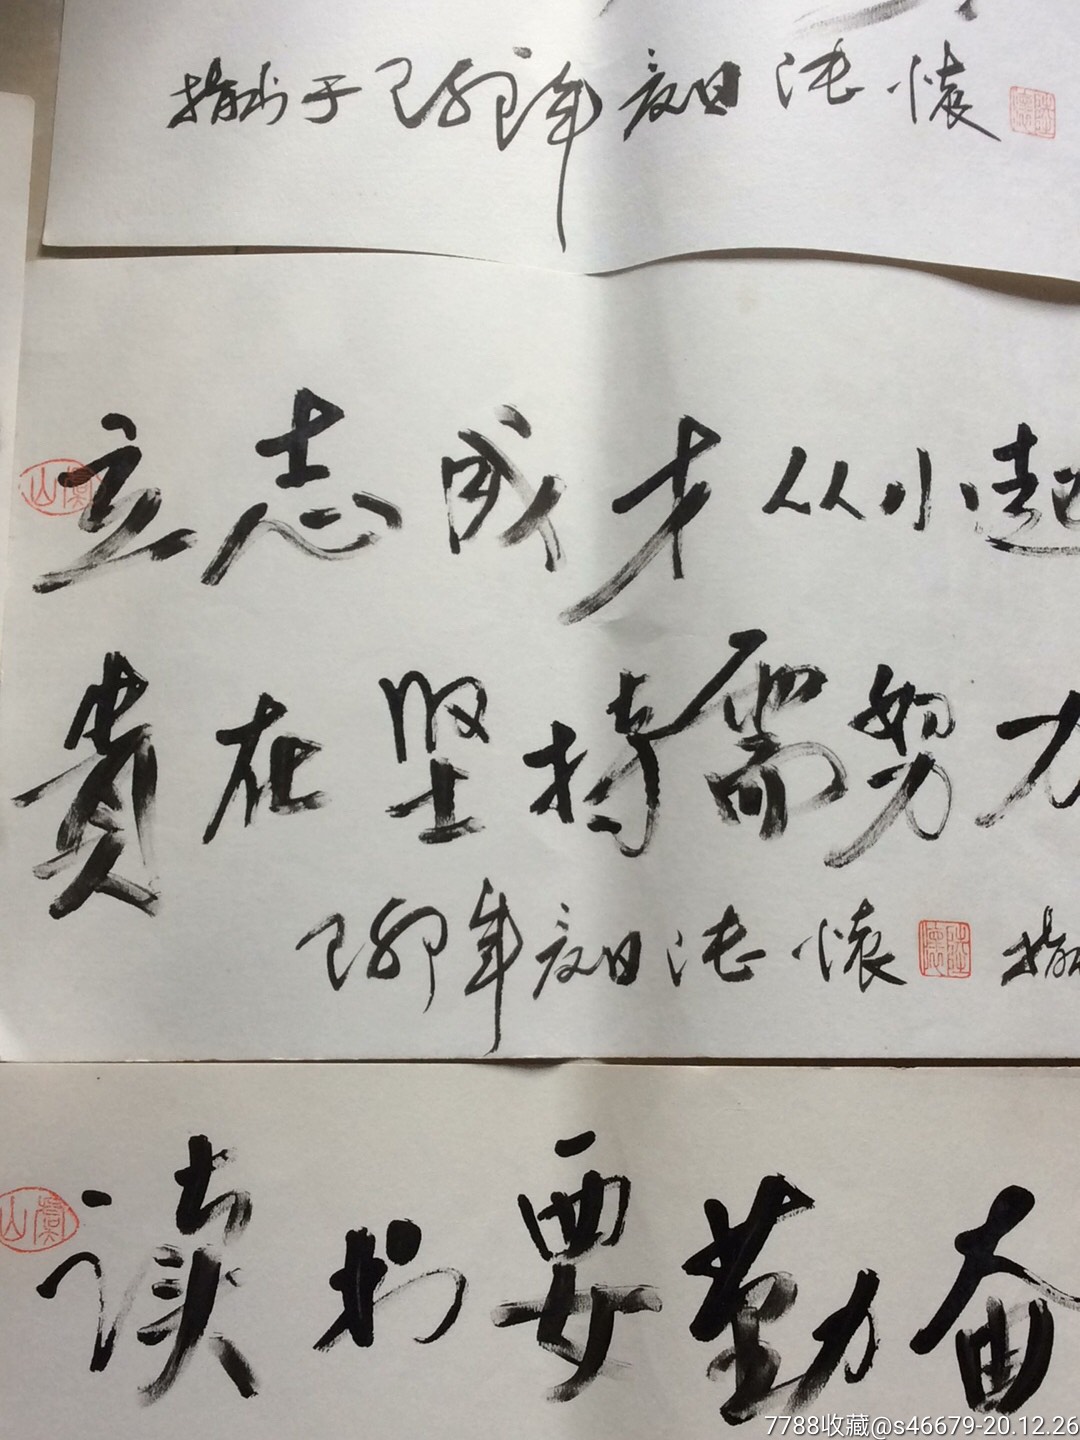 指书于己卯年夏日 怀
虞山
立志成才从小起
贵在坚持需努力
己卯年夏日 怀 指
虞山
读书要勤奋
7788收藏@s46679-20.12.26